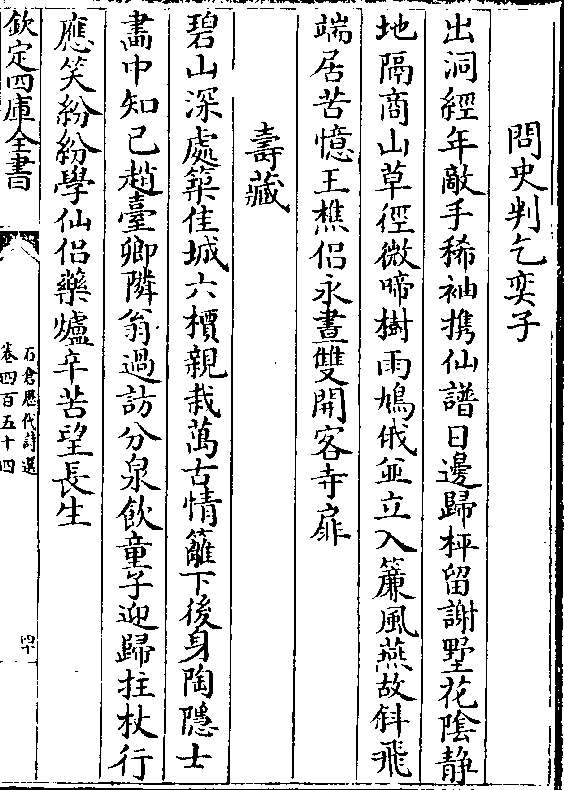 問史判乞奕子
出洞經年敵手稀袖携仙譜日邊歸枰留謝墅花陰静
地隔商山草徑微啼樹雨鳩俄並立入簾風燕故斜飛
端居苦憶王樵侶永晝雙開客寺扉
壽藏
碧山深處築佳城六檟親栽萬古情籬下後身陶隱士
畵中知已趙臺卿隣翁過訪分泉飲童子迎歸拄杖行
應笑紛紛學仙侶藥爐辛苦望長生
欽定四庫全書
石倉歷代詩選
卷四百五十四